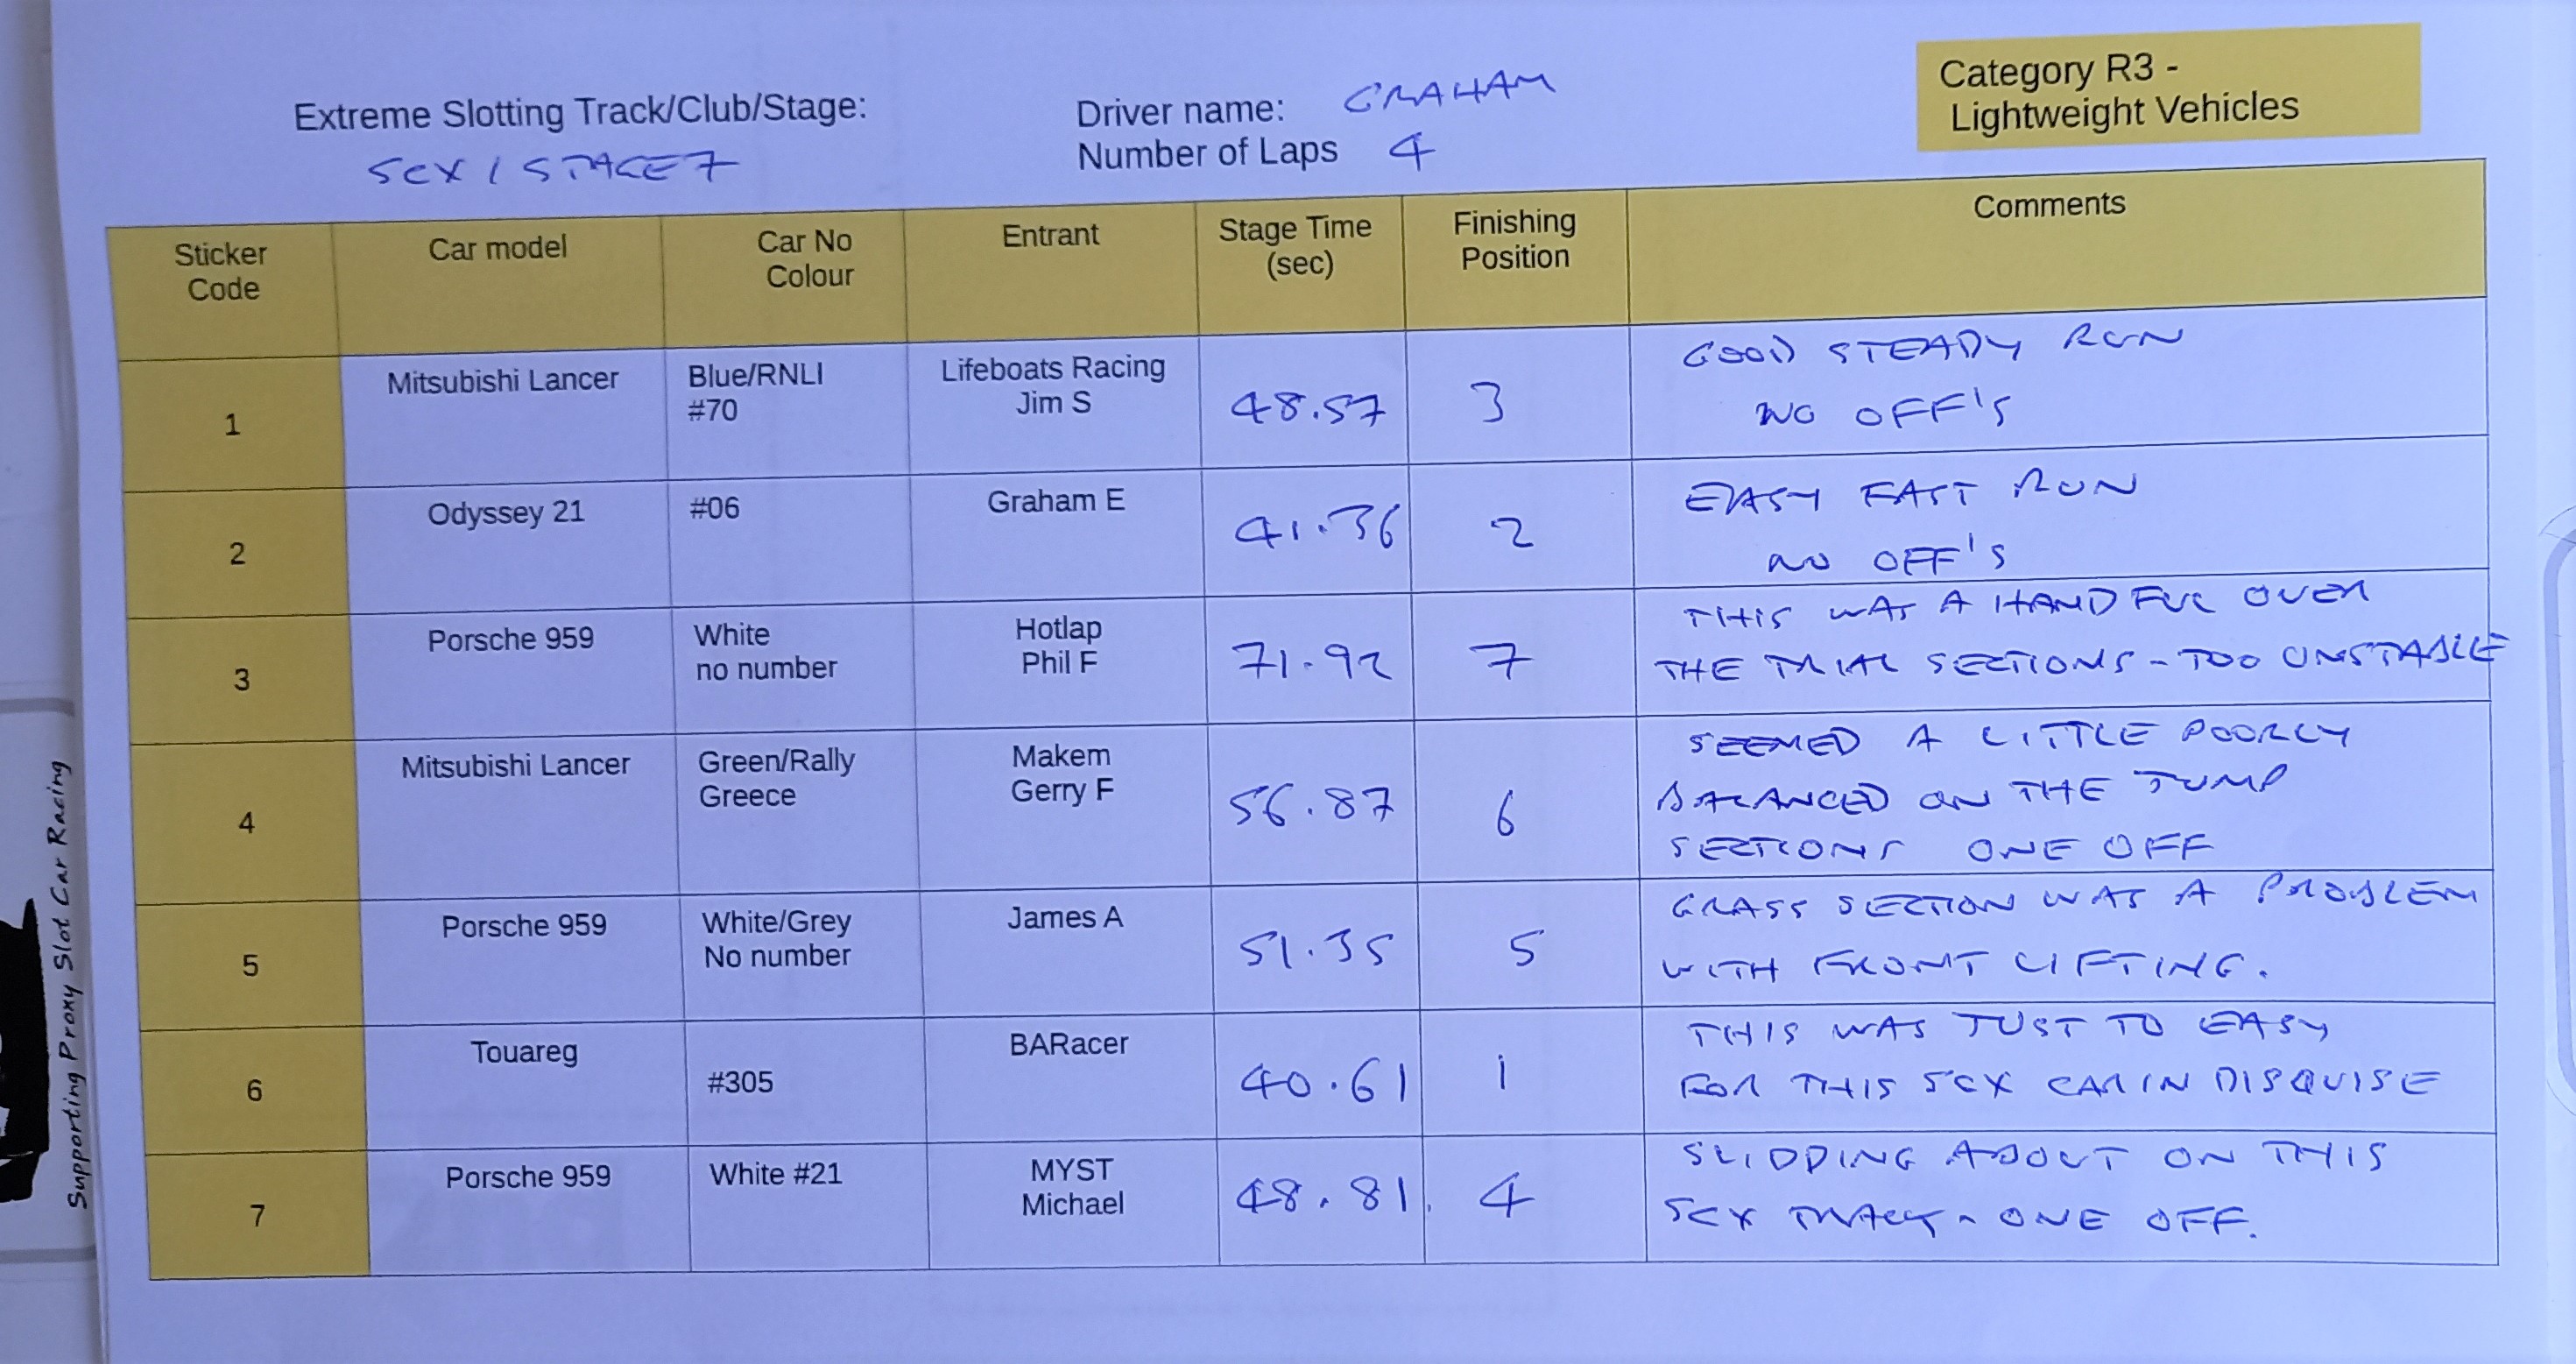 Category R3 -
Lightweight Vehicles
Extreme Slotting Track/Club/Stage:
SCX / STAGE 7
Driver name: GRAHAM
Number of Laps 4
Sticker Code
Car model
Car No Colour
Entrant
Stage Time (sec)
Finishing Position
Comments
1
Mitsubishi Lancer
Blue/RNLI
#70
Lifeboats Racing
Jim S
48.57
3
GOOD STEADY RUN
NO OFF'S
2
Odyssey 21
#06
Graham E
41.36
2
EASY FAST RUN
NO OFF'S
3
Porsche 959
White
no number
Hotlap
Phil F
71.92
7
THIS WAS A HANDFUL OVER
THE TRIAL SECTIONS - TOO UNSTABLE
4
Mitsubishi Lancer
Green/Rally
Greece
Makem
Gerry F
56.87
6
SEEMED A LITTLE POORLY
BALANCED ON THE JUMP
SECTIONS ONE OFF
5
Porsche 959
White/Grey
No number
James A
51.35
5
GRASS SECTION WAS A PROBLEM
WITH FRONT LIFTING.
6
Touareg
#305
BARacer
40.61
1
THIS WAS JUST TO EASY
FOR THIS SCX CAR IN DISQUISE
7
Porsche 959
White #21
MYST
Michael
48.81
4
SLIDDING ABOUT ON THIS
SCX TRACK - ONE OFF.
Supporting Proxy Slot Car Racing